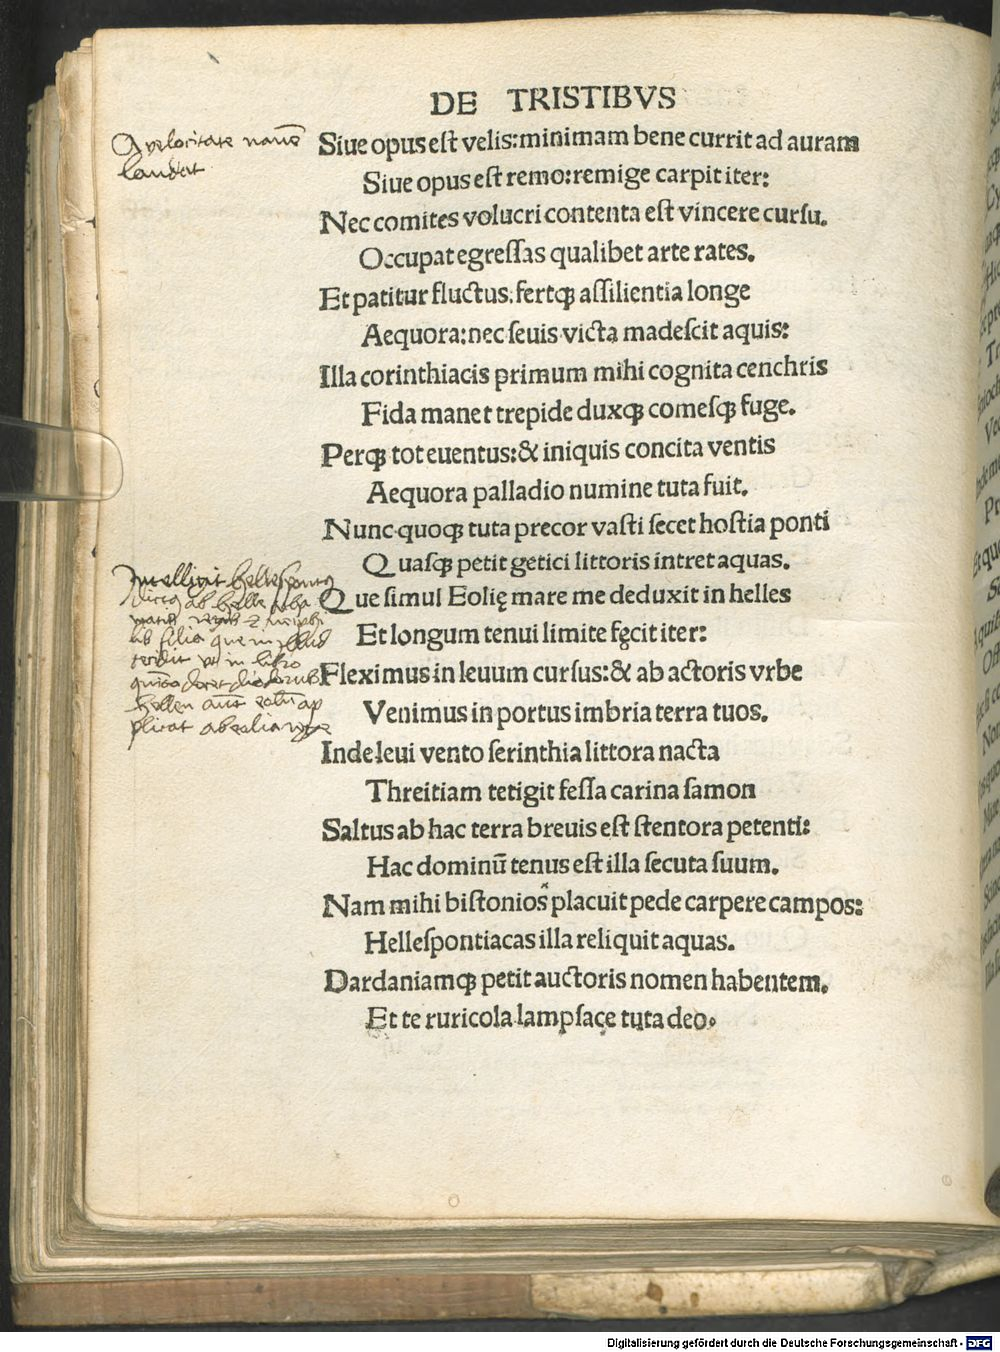 DE TRISTIBVS
A velocitate nauē
laudat
Siue opus eſt velis:minimam bene currit ad auram
Siue opus eſt remo:remige carpit iter:
Nec comites volucri contenta eſt vincere curſu.
Occupat egreſſas qualibet arte rates.
Et patitur fluctus.fertqȝ aſſilientia longe
Aequora:nec ſeuis victa madeſcit aquis:
Illa corinthiacis primum mihi cognita cenchris
Fida manet trepide duxqȝ comeſqȝ fuge.
Perqȝ tot euentus:& iniquis concita ventis
Aequora palladio numine tuta fuit.
Nunc quoqȝ tuta precor vaſti ſecet hoſtia ponti
Quaſqȝ petit getici littoris intret aquas.
Que ſimul Eolię mare me deduxit in helles
Et longum tenui limite fęcit iter:
Fleximus in leuum curſus:& ab actoris vrbe
Venimus in portus imbria terra tuos.
Inde leui vento ſerinthia littora nacta
Threitiam tetigit feſſa carina ſamon
Saltus ab hac terra breuis eſt ſtentora petenti:
Hac dominū tenus eſt illa ſecuta ſuum.
Nam mihi biſtonios placuit pede carpere campos:
Helleſpontiacas illa reliquit aquas.
Dardaniamqȝ petit auctoris nomen habentem.
Et te ruricola lampſaçe tuta deo.
Intelligit
ab helle
filia que in
in libro
Digitalisierung gefördert durch die Deutsche Forschungsgemeinschaft - DFG